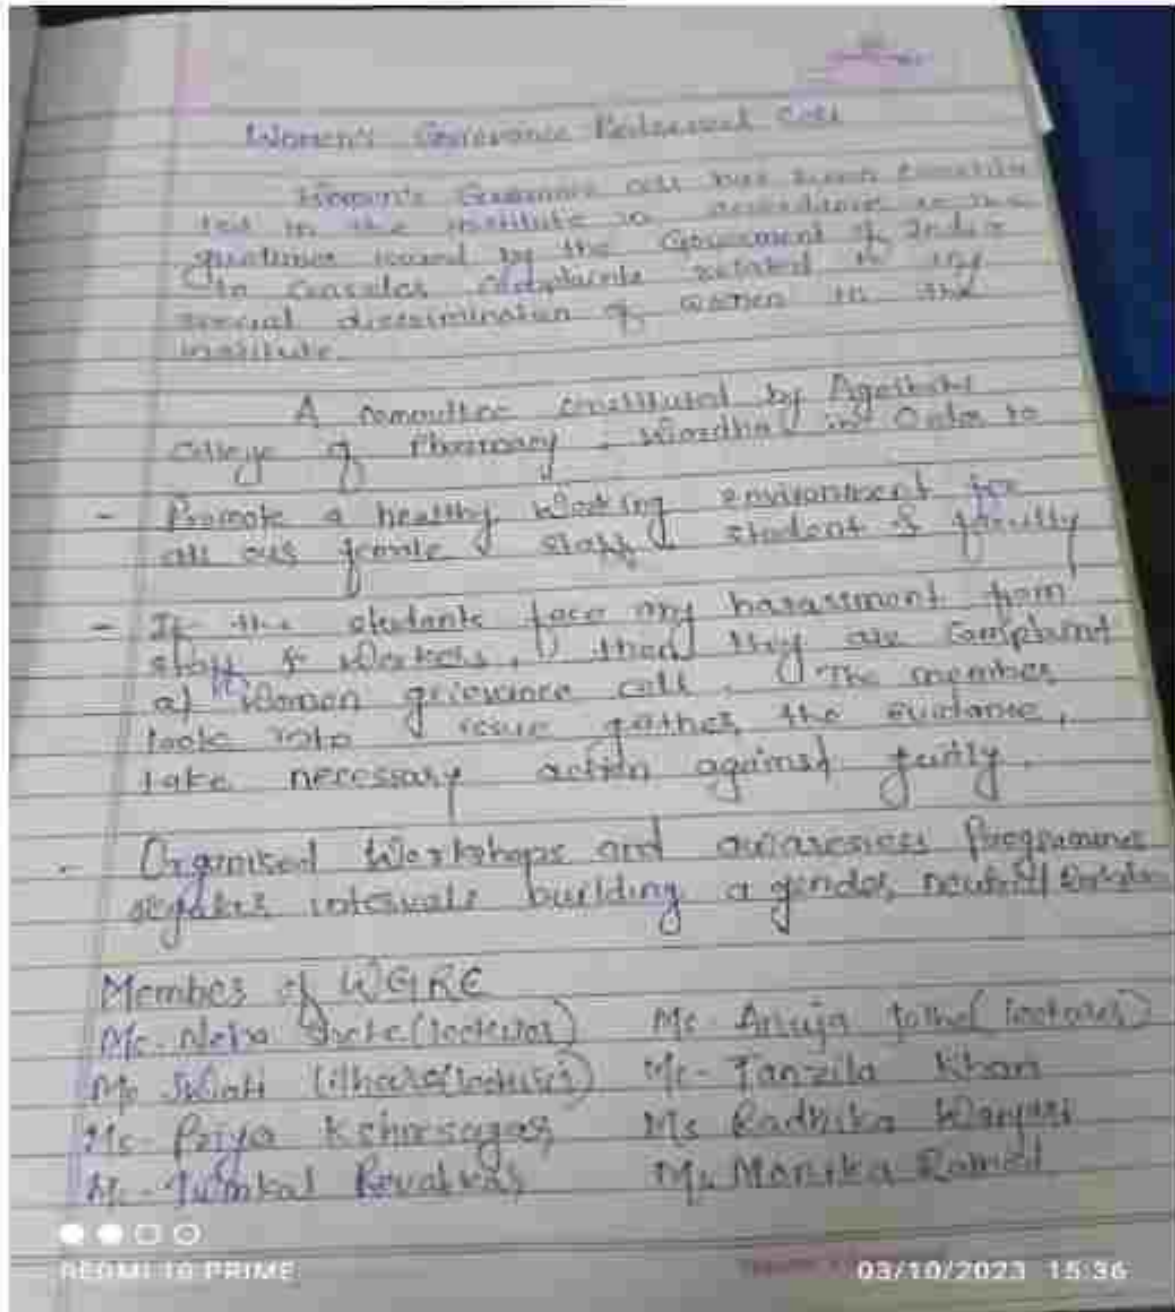 Women's Grievance Redressal Cell
Women's Grievance cell has been constitu
ted in the institute in accordance to the
guidlines issued by the Goverment of India
to consider complaints related to any
sexual discrimination of women in the
institute.
A committee constituted by
College of Pharmacy, Wardha in Order to
- Promote a healthy Working environment for
all our female staff, student & faculty
- If the students face any harassment from
staff & workers, then they are complaint
at Women grievance cell. The member
look into issue gather the evidance,
take necessary action against guilty.
- Organised Workshops and awareness Programme
regular intervals building a gender neutral
Member of WGRC
Ms. Neha (lecturer) Ms. Anuja (lecturer)
Ms. Swati (lecturer) Ms. Tanzila Khan
Ms. Priya Kshirsagar Ms. Radhika
Ms. Ms. Monika
REDMI 10 PRIME 03/10/2023 15:36